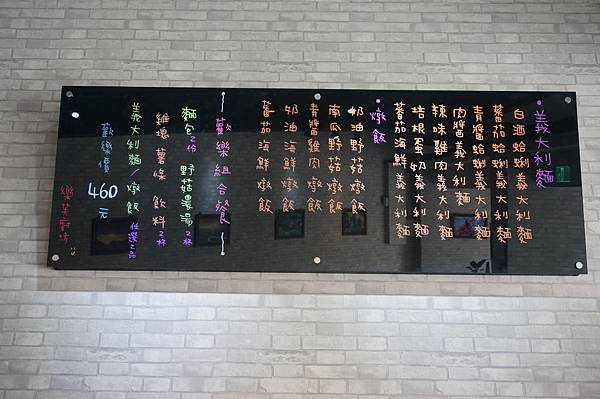 •義大利麵
白酒蛤蜊義大利麵
蕃茄蛤蜊義大利麵
青醬蛤蜊義大利麵
肉醬義大利麵
辣味雞肉義大利麵
培根蛋奶義大利麵
蕃茄海鮮義大利麵
•燉飯
奶油野菇燉飯
南瓜野菇燉飯
青醬雞肉燉飯
奶油海鮮燉飯
蕃茄海鮮燉飯
~歡樂組合餐~
麵包2份 野菇濃湯2杯
雞塊薯條 飲料2杯
義大利麵/燉飯 任選2品
歡樂價 460元
樂芙廚坊